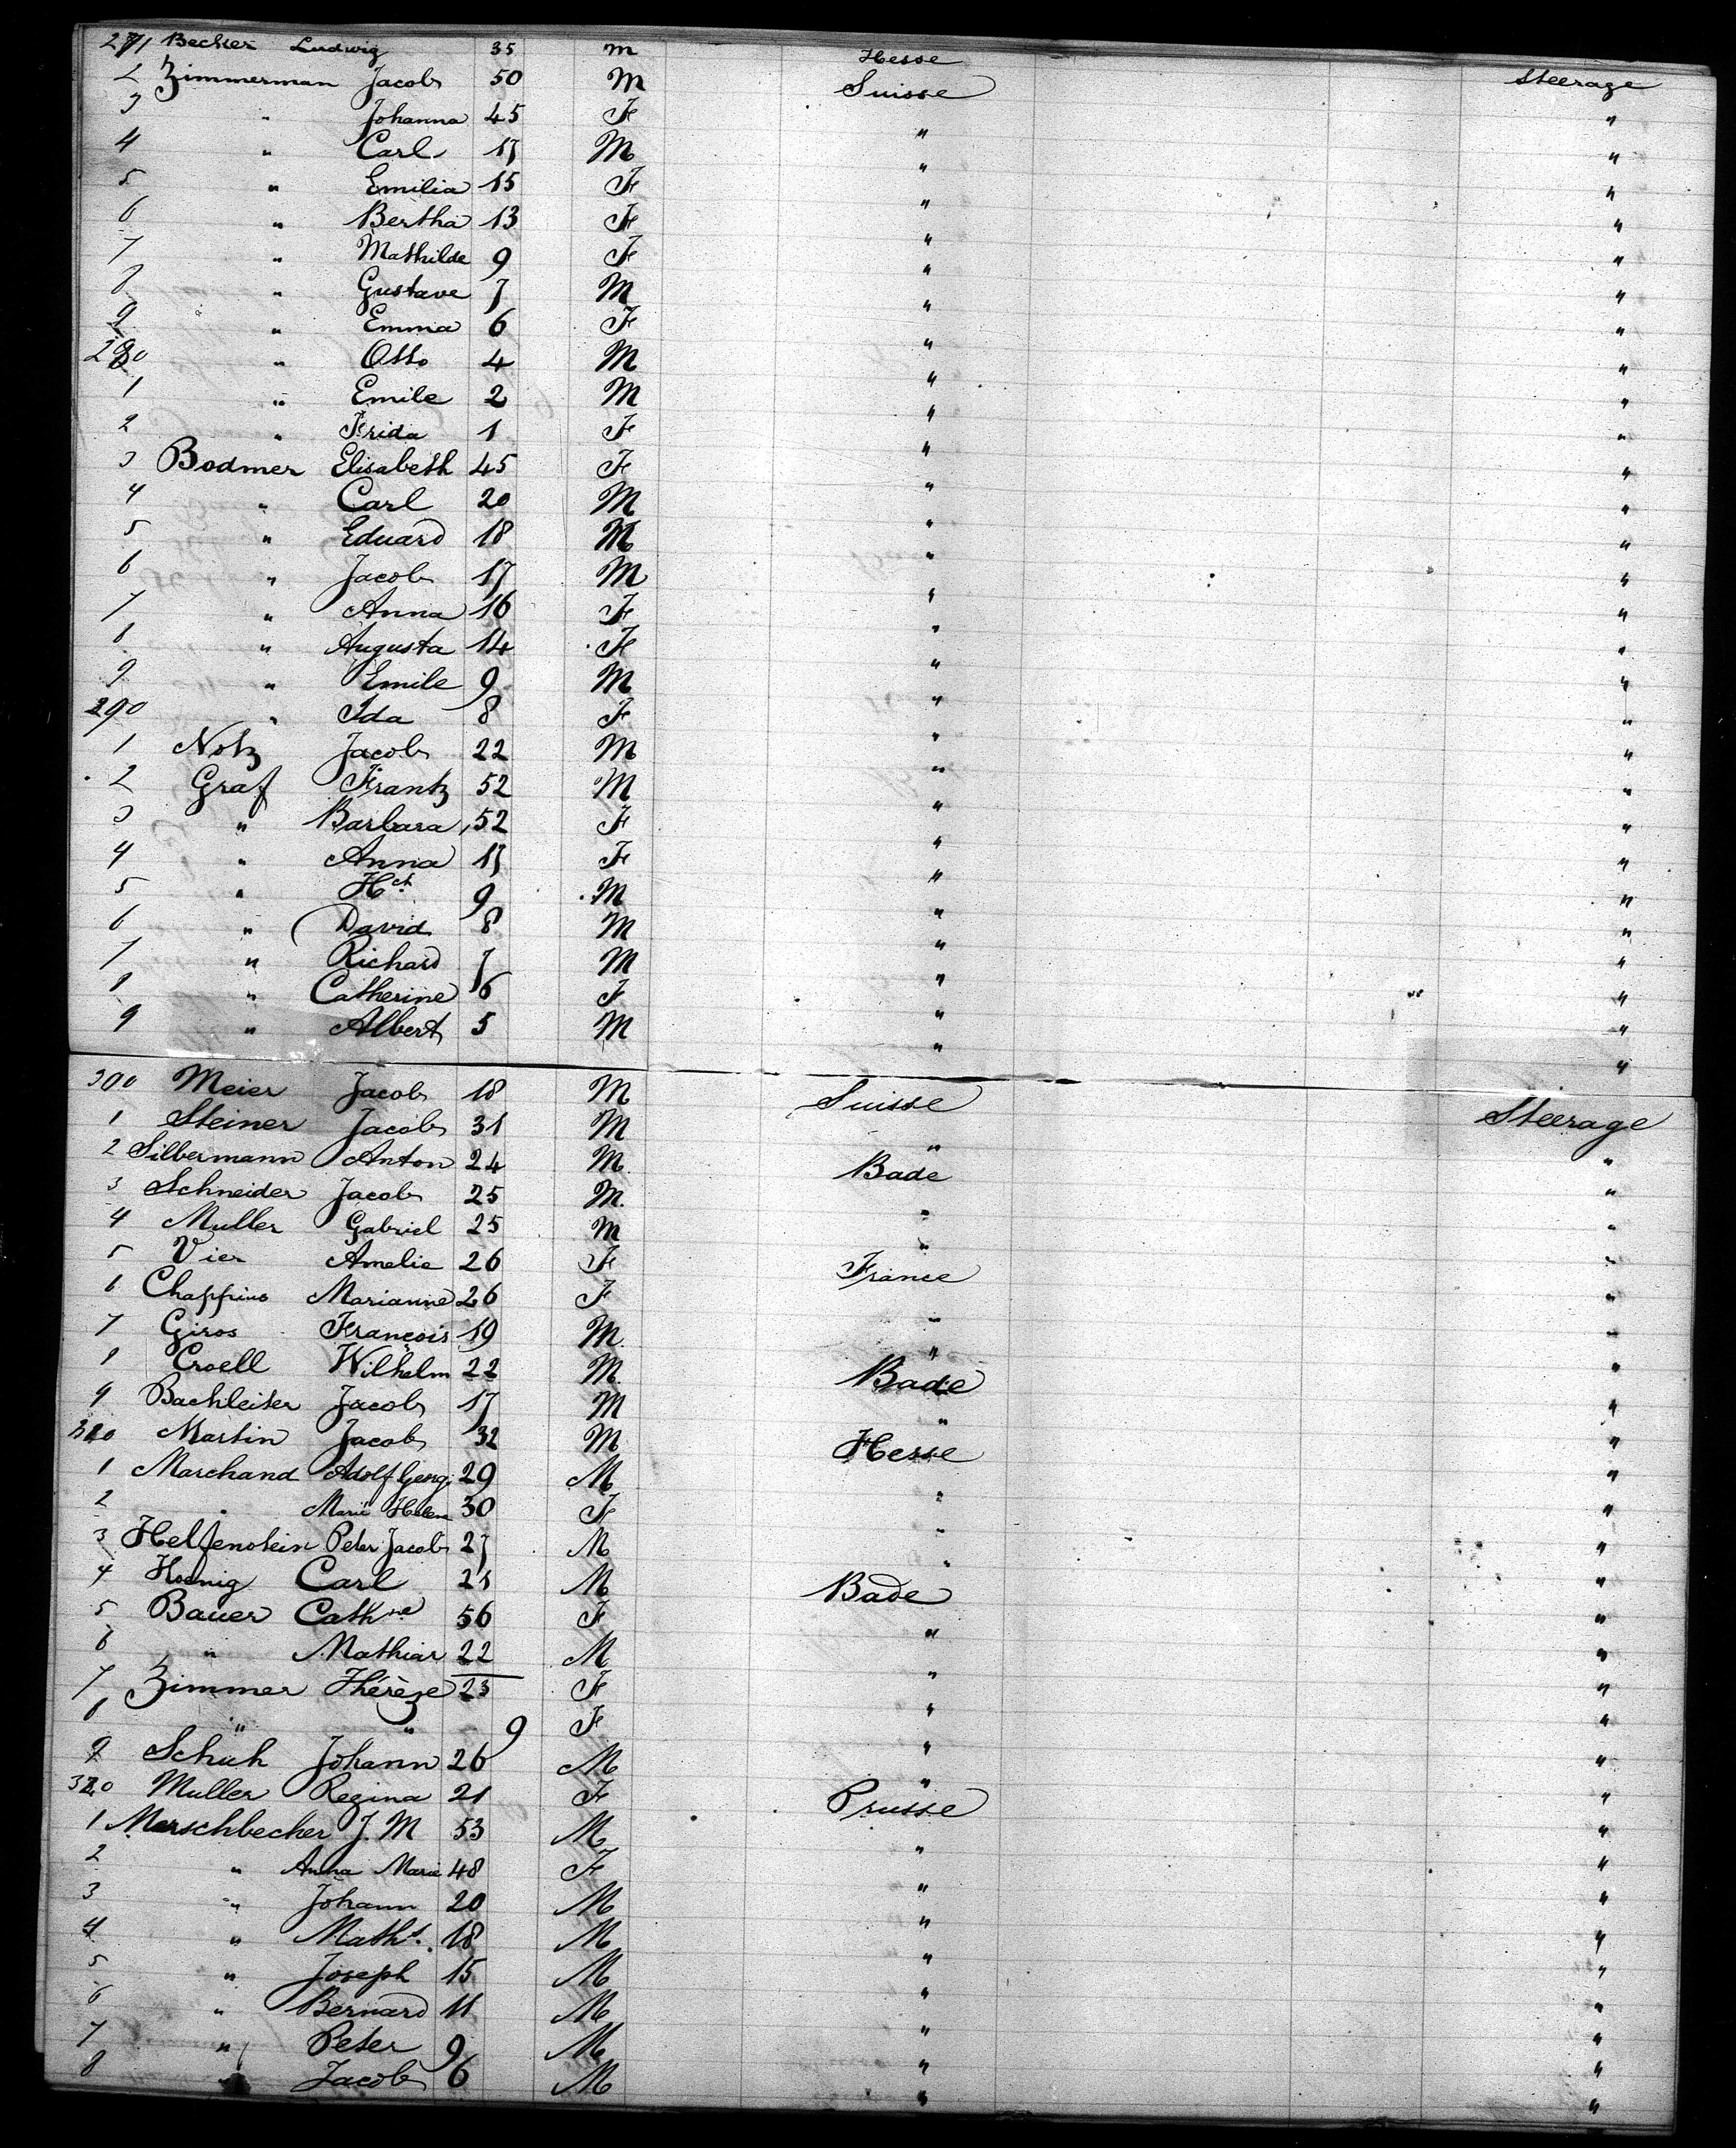 271 Becker Ludwig 35 M Hesse Steerage
2 Zimmerman Jacob 50 M Suisse "
3 " Johanna 45 F " "
4 " Carl 17 M " "
5 " Emilia 15 F " "
6 " Bertha 13 F " "
7 " Mathilde 9 F " "
8 " Gustave 7 M " "
9 " Emma 6 F " "
280 " Otto 4 M " "
1 " Emile 2 M " "
2 " Frida 1 F " "
3 Bodmer Elisabeth 45 F " "
4 " Carl 20 M " "
5 " Eduard 18 M " "
6 " Jacob 17 M " "
7 " Anna 16 F " "
8 " Augusta 14 F " "
9 " Emile 9 M " "
290 " Ida 8 F " "
1 Notz Jacob 22 M " "
2 Graf Frantz 52 M " "
3 " Barbara 52 F " "
4 " Anna 17 F " "
5 " Hch 9 M " "
6 " David 8 M " "
7 " Richard 7 M " "
8 " Catherine 6 F " "
9 " Albert 5 M " "
300 Meier Jacob 18 M Suisse Steerage
1 Steiner Jacob 31 M " "
2 Silbermann Anton 24 M Bade "
3 Schneider Jacob 25 M " "
4 Muller Gabriel 25 M " "
5 Vier Amelie 26 F France "
6 Chappuis Marianne 26 F " "
7 Giros François 19 M " "
8 Croell Wilhelm 22 M Bade "
9 Bachleiter Jacob 17 M " "
310 Martin Jacob 32 M Hesse "
1 Marchand Adolf Georg 29 M " "
2 " Marie Helena 30 F " "
3 Helfenstein Peter Jacob 27 M " "
4 Hoenig Carl 21 M Bade "
5 Bauer Cathne 56 F " "
6 " Mathias 22 M " "
7 Zimmer Thérèze 23 F " "
8 " " 9 F " "
9 Schuh Johann 26 M " "
320 Muller Regina 21 F Prusse "
1 Merschbecher J. M 53 M " "
2 " Anna Marie 48 F " "
3 " Johann 20 M " "
4 " Maths. 18 M " "
5 " Joseph 15 M " "
6 " Bernard 11 M " "
7 " Peter 9 M " "
8 " Jacob 6 M " "